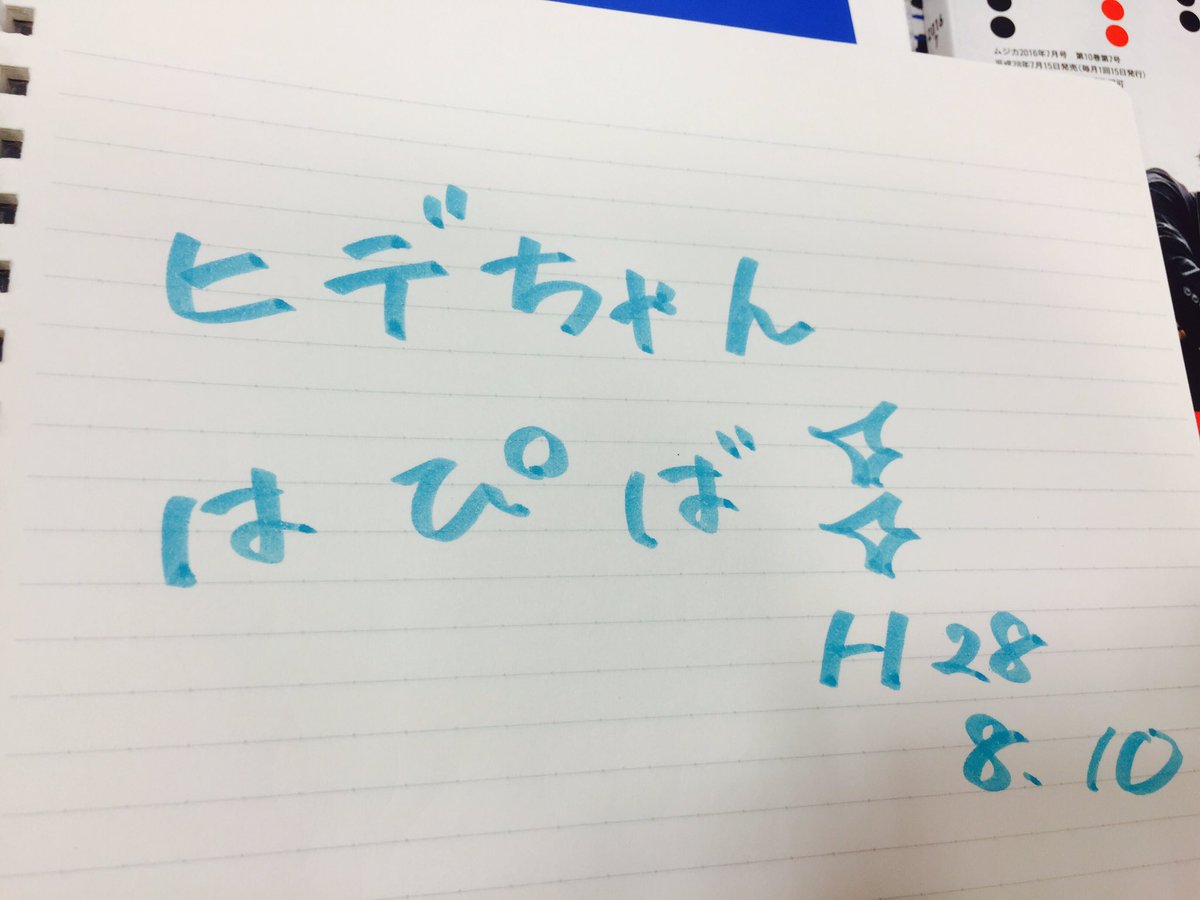 ヒデちゃん
はぴば✧
✧
H28
8.10
ムジカ2016年7月号 第10巻第7号
平成28年7月15日発売(毎月1回15日発行)